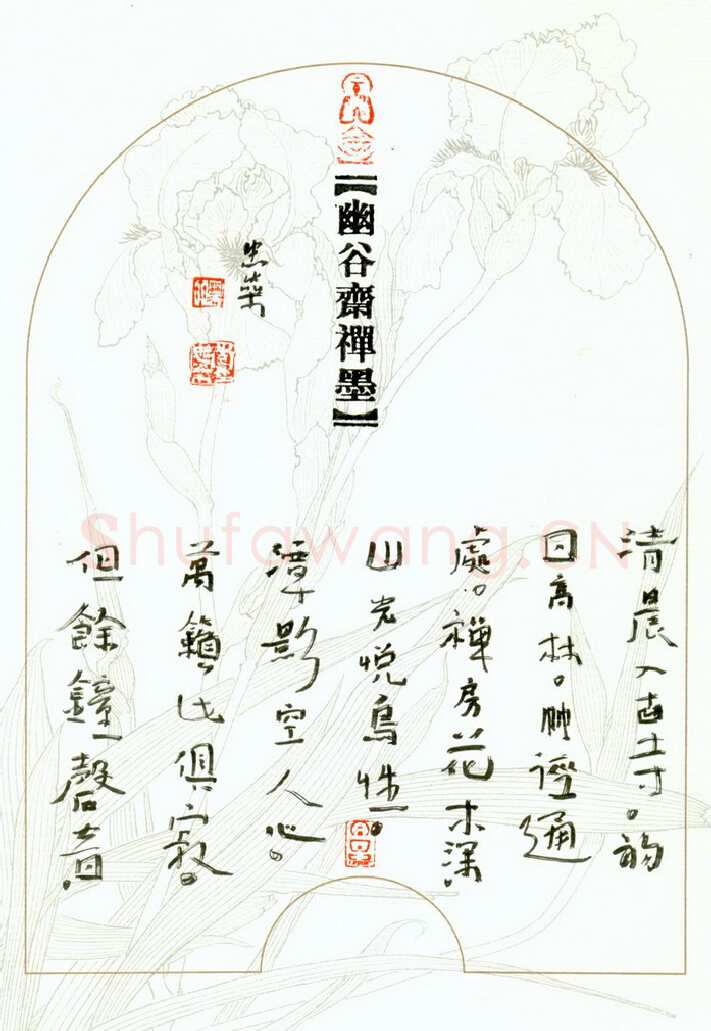 【幽谷齋禪墨】
清晨入古寺。初
日高林。徑通
處。禪房花木深。
山光悅鳥性。
潭影空人心。
萬籟此俱寂。
但餘鐘磬音。
Shufawang.CN